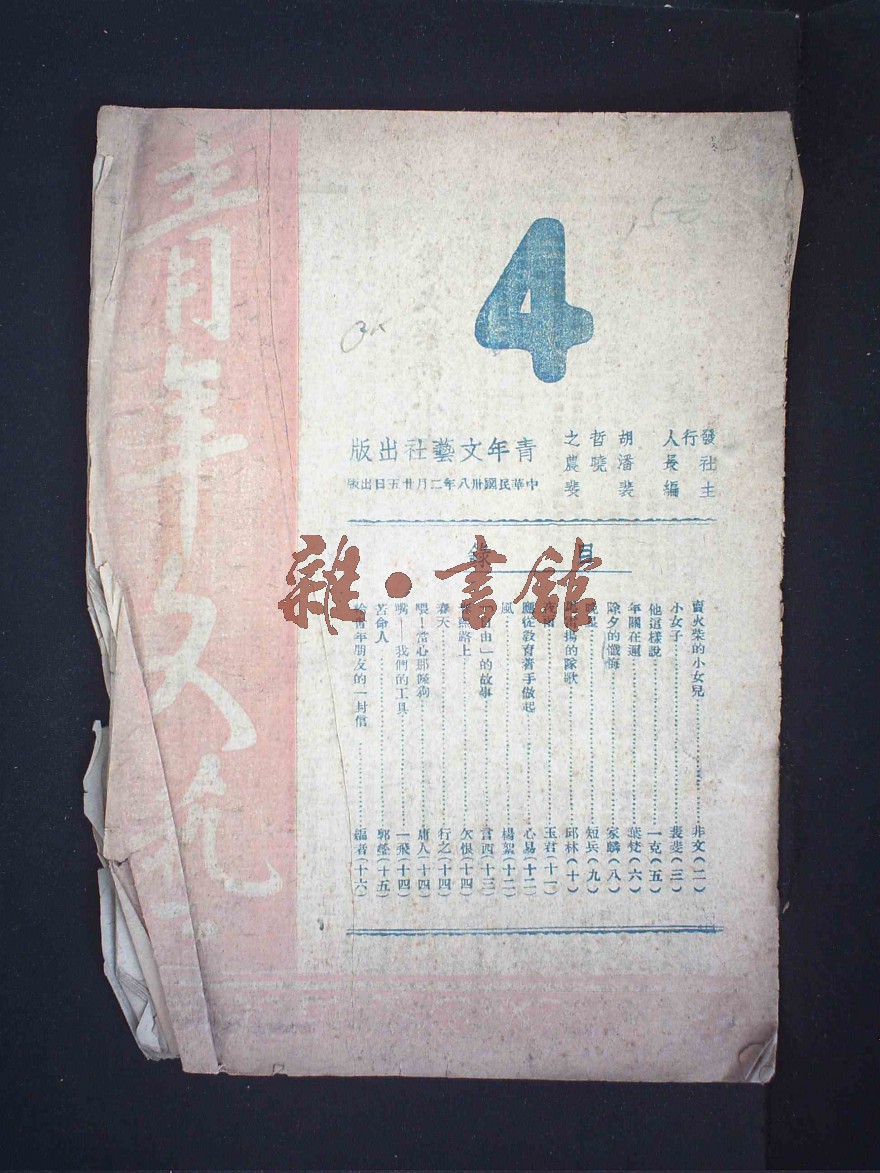 青年文藝
4
發行人 胡哲之
社長 潘曉農
主編 裴裴
青年文藝社出版
中華民國卅八年二月廿五日出版
目錄
賣火柴的小女兒 非文(二)
小女子 裴斐(三)
他這樣說 一克(五)
年關在邇 葉梵(六)
除夕的懺悔 家麟(八)
短兵(九)
揚的隊歌 邱林(十)
玉君(十一)
應從教育著手做起 心易(十二)
風 楊絮(十二)
自由」的故事 言西(十三)
路上 欠恨(十四)
春天 行之(十四)
喂!當心那隻狗 庸人(十四)
嘴——我們的工具 一飛(十四)
苦命人 郭瑩(十五)
給青年朋友的一封信 編者(十六)
雜·書館
150